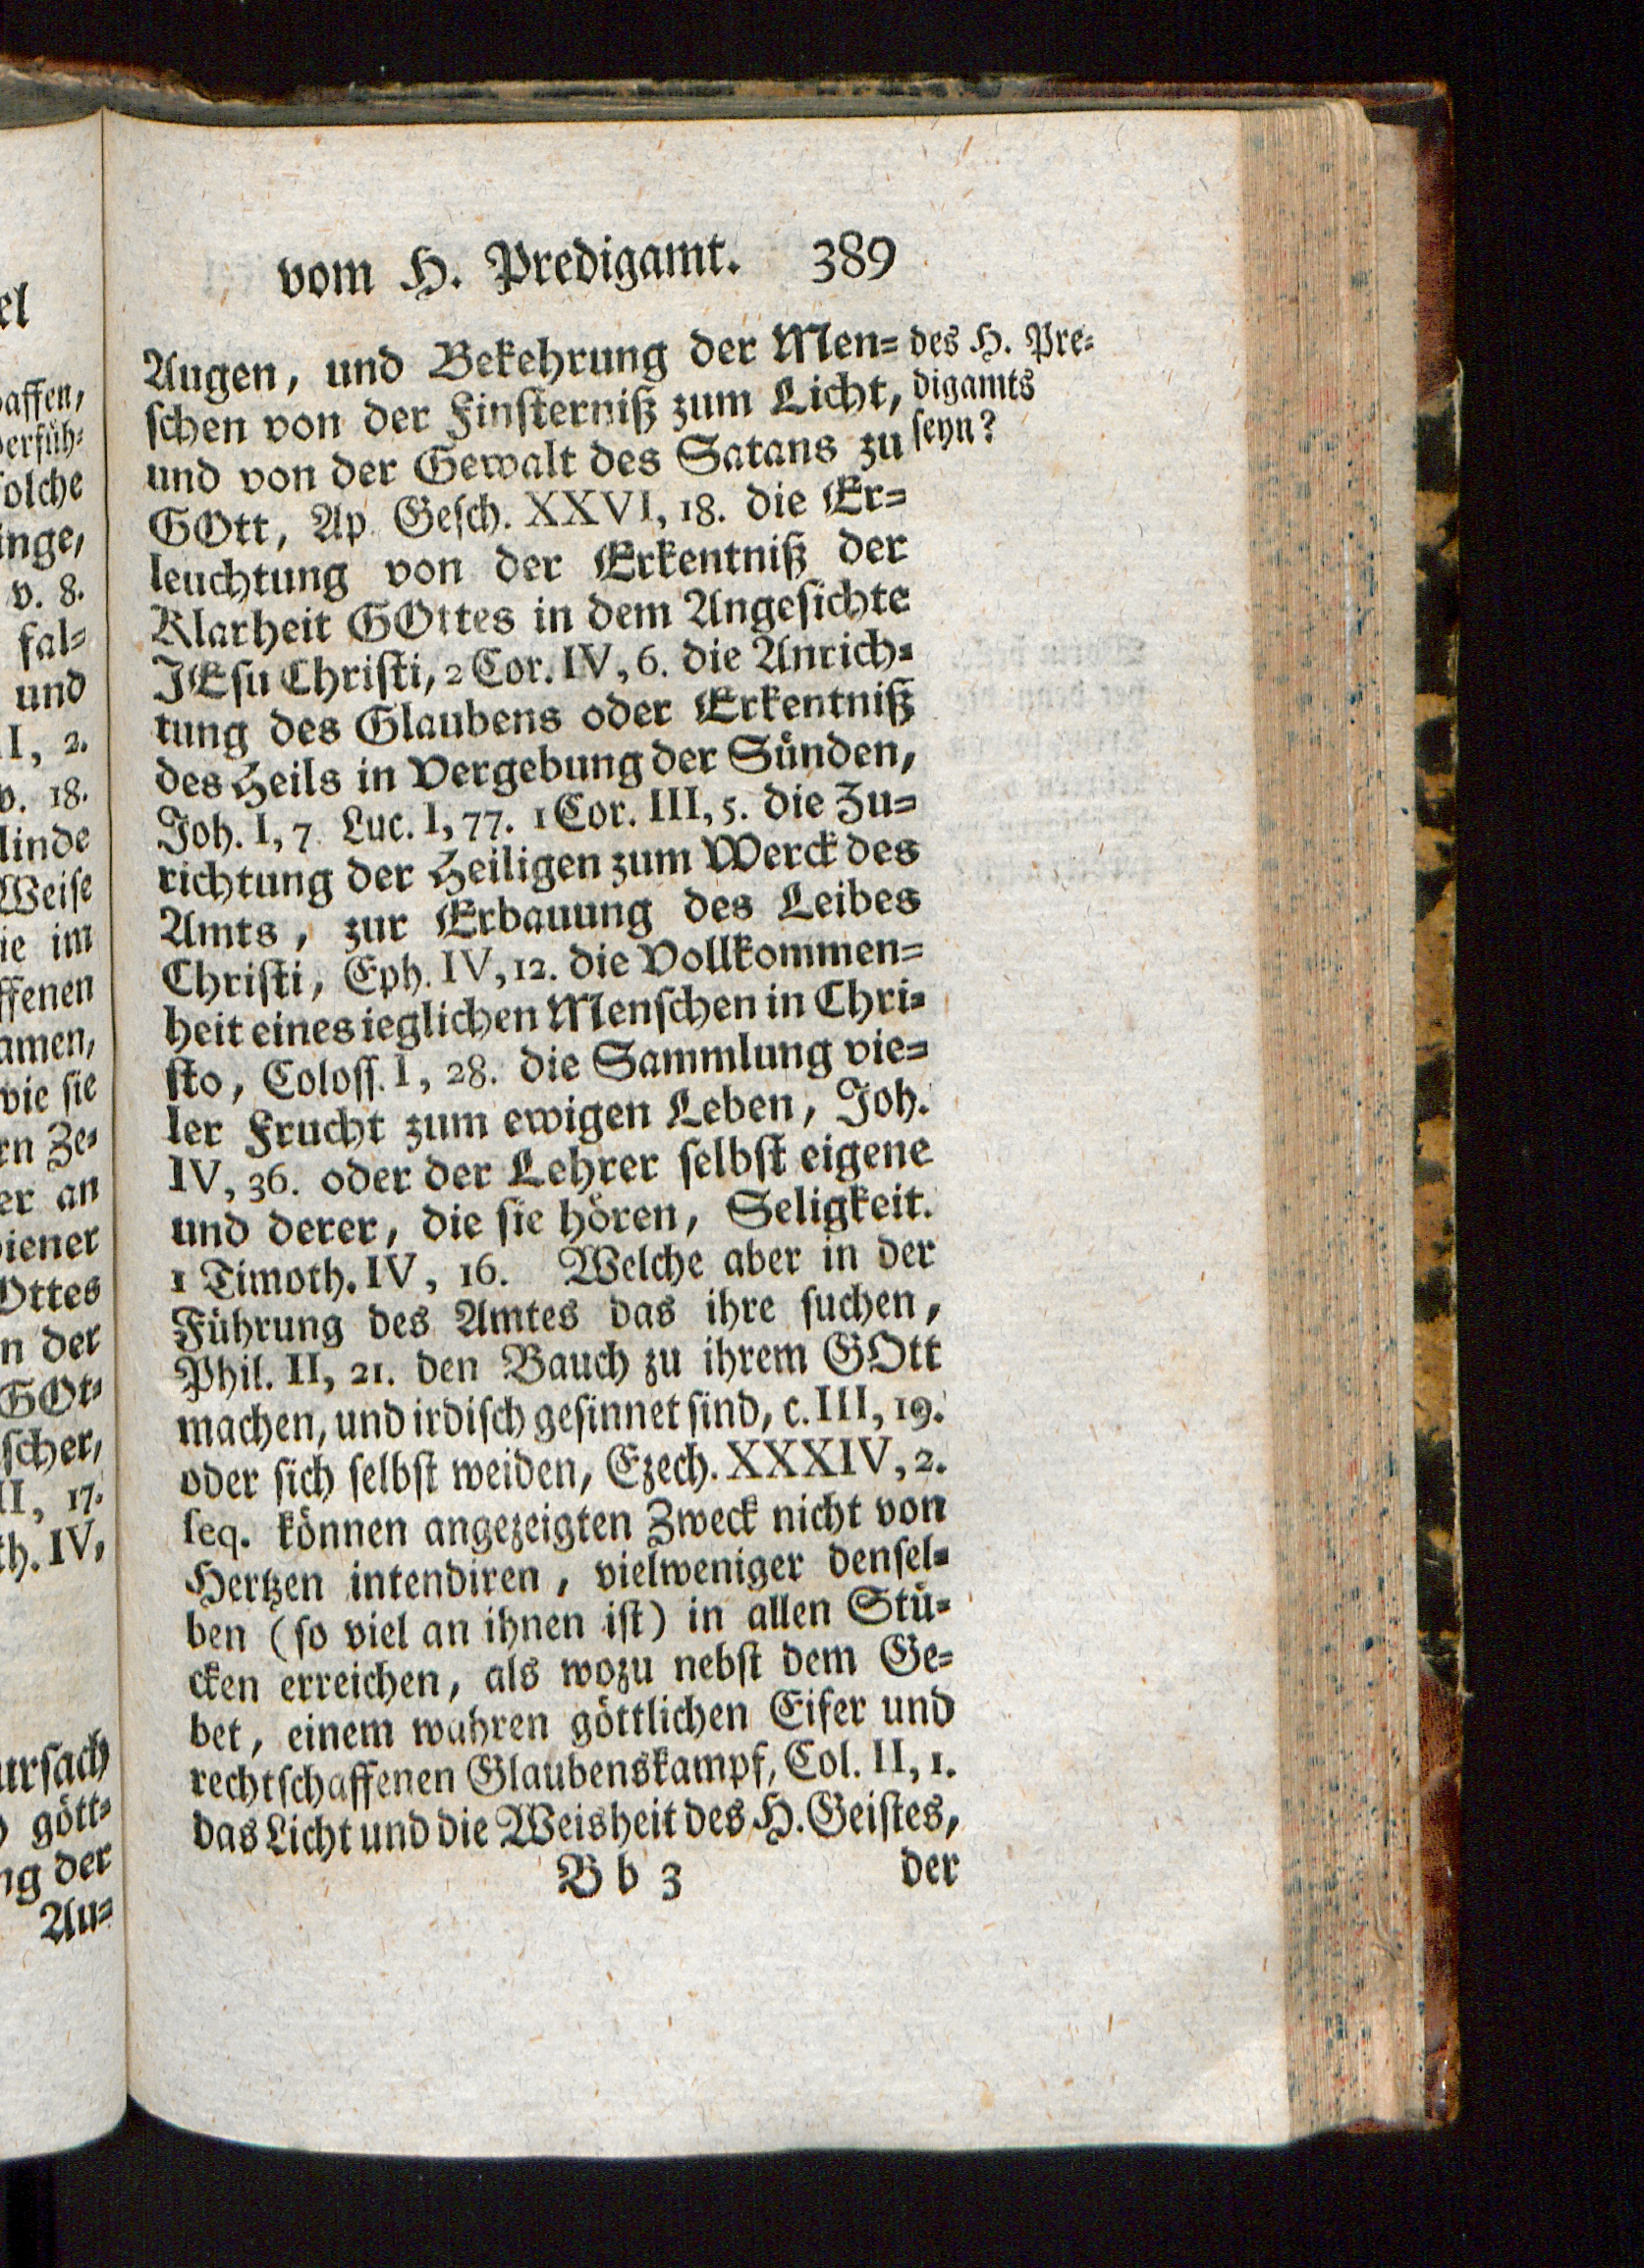 vom H. Predigamt. 389
Augen, und Bekehrung der Men=
schen von der Finsterniß zum Licht,
und von der Gewalt des Satans zu
GOtt, Ap. Gesch. XXVI, 18. die Er=
leuchtung von der Erkentniß der
Klarheit GOttes in dem Angesichte
JEsu Christi, 2 Cor. IV, 6. die Anrich=
tung des Glaubens oder Erkentniß
des Heils in Vergebung der Sünden,
Joh. I, 7. Luc. I, 77. 1 Cor. III, 5. die Zu=
richtung der Heiligen zum Werck des
Amts, zur Erbauung des Leibes
Christi, Eph. IV, 12. die Vollkommen=
heit eines ieglichen Menschen in Chri=
sto, Coloss. I, 28. die Sammlung vie=
ler Frucht zum ewigen Leben, Joh.
IV, 36. oder der Lehrer selbst eigene
und derer, die sie hören, Seligkeit.
1 Timoth. IV, 16. Welche aber in der
Führung des Amtes das ihre suchen,
Phil. II, 21. den Bauch zu ihrem GOtt
machen, und irdisch gesinnet sind, c. III, 19.
oder sich selbst weiden, Ezech. XXXIV, 2.
seq. können angezeigten Zweck nicht von
Hertzen intendiren, vielweniger densel=
ben (so viel an ihnen ist) in allen Stü=
cken erreichen, als wozu nebst dem Ge=
bet, einem wahren göttlichen Eifer und
rechtschaffenen Glaubenskampf, Col. II, 1.
das Licht und die Weisheit des H. Geistes,
B b 3 der
des H. Pre=
digamts
seyn?